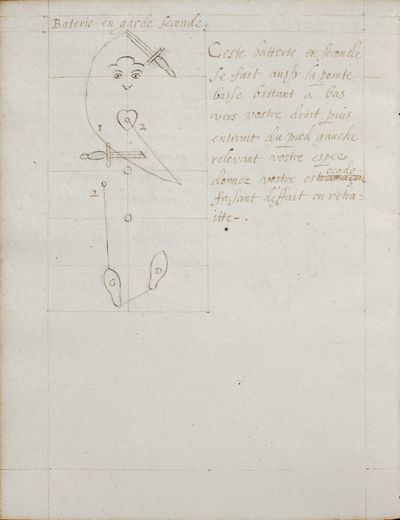 Baterie en garde seconde.
Ceste batterie en seconde
se fait aussy la pointe
basse battant a bas
vers vostre droit puis
entrant du pied gauche
relevant vostre espee
donnez vostre estocade
faisant deffait ou retra-
itte-.
1
2
2
G
D